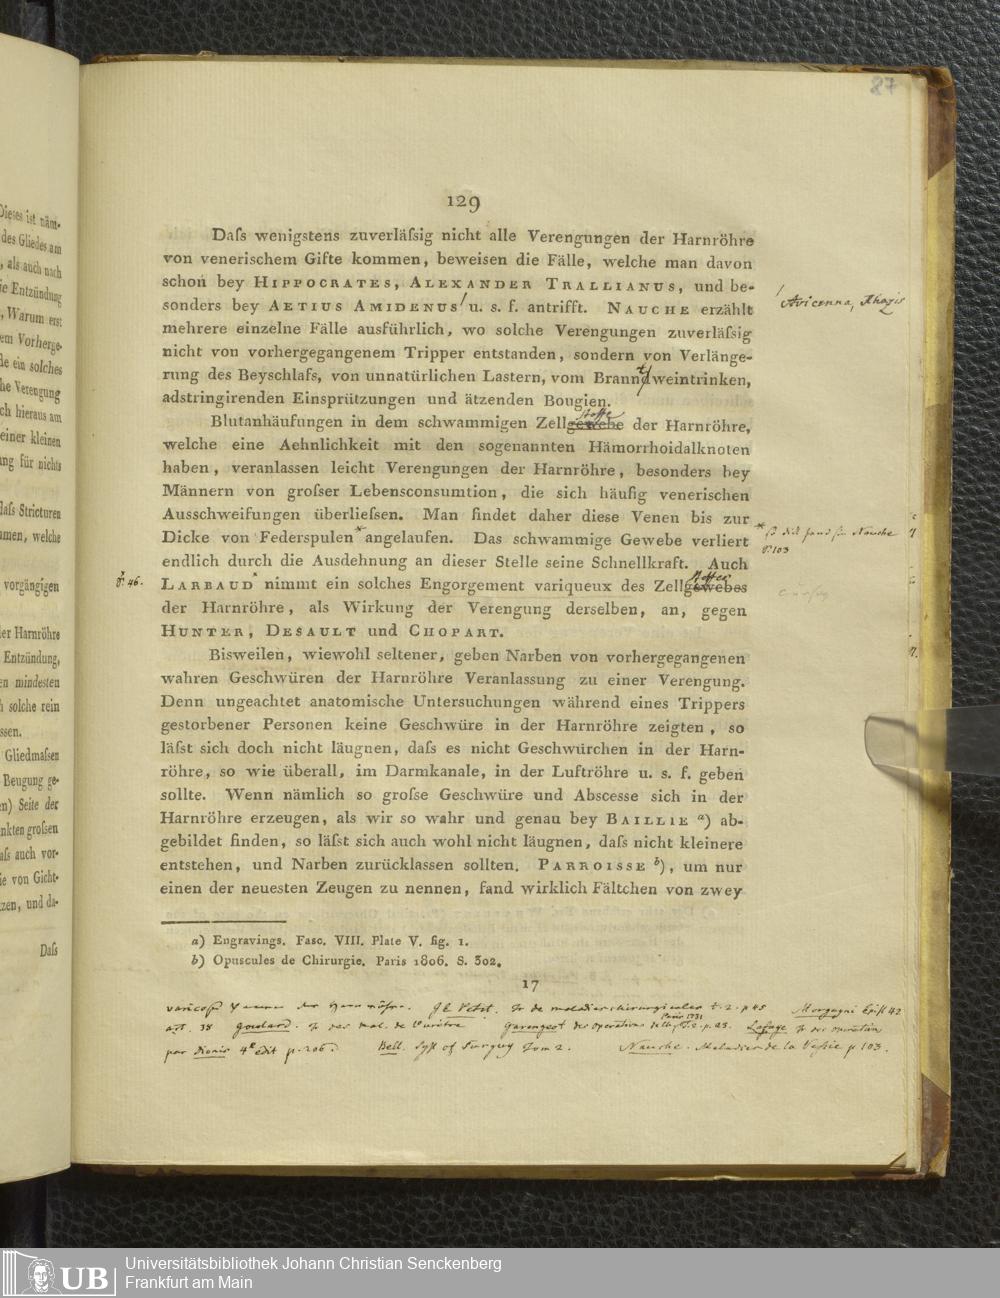 87
129
Daſs wenigstens zuverläſsig nicht alle Verengungen der Harnröhre
von venerischem Gifte kommen, beweisen die Fälle, welche man davon
schon bey HIPPOCRATES, ALEXANDER TRALLIANUS, und be-
sonders bey AETIUS AMIDENUS / u. s. f. antrifft. NAUCHE erzählt
/ Avicenna, Rhazis
mehrere einzelne Fälle ausführlich, wo solche Verengungen zuverläſsig
nicht von vorhergegangenem Tripper entstanden, sondern von Verlänge-
rung des Beyschlafs, von unnatürlichen Lastern, vom Branntweintrinken,
adstringirenden Einsprützungen und ätzenden Bougien.
Blutanhäufungen in dem schwammigen Zellgewebe stoffe der Harnröhre,
welche eine Aehnlichkeit mit den sogenannten Hämorrhoidalknoten
haben, veranlassen leicht Verengungen der Harnröhre, besonders bey
Männern von groſser Lebensconsumtion, die sich häufig venerischen
Ausschweifungen überlieſsen. Man findet daher diese Venen bis zur
Dicke von Federspulen * angelaufen. Das schwammige Gewebe verliert
* so dick fand sie Nauche
p. 103
endlich durch die Ausdehnung an dieser Stelle seine Schnellkraft. Auch
* p. 46.
LARBAUD * nimmt ein solches Engorgement variqueux des Zellgewebes stoffes
der Harnröhre, als Wirkung der Verengung derselben, an, gegen
HUNTER, DESAULT und CHOPART.
Bisweilen, wiewohl seltener, geben Narben von vorhergegangenen
wahren Geschwüren der Harnröhre Veranlassung zu einer Verengung.
Denn ungeachtet anatomische Untersuchungen während eines Trippers
gestorbener Personen keine Geschwüre in der Harnröhre zeigten, so
läſst sich doch nicht läugnen, daſs es nicht Geschwürchen in der Harn-
röhre, so wie überall, im Darmkanale, in der Luftröhre u. s. f. geben
sollte. Wenn nämlich so groſse Geschwüre und Abscesse sich in der
Harnröhre erzeugen, als wir so wahr und genau bey BAILLIE a) ab-
gebildet finden, so läſst sich auch wohl nicht läugnen, daſs nicht kleinere
entstehen, und Narben zurücklassen sollten. PARROISSE b), um nur
einen der neuesten Zeugen zu nennen, fand wirklich Fältchen von zwey
a) Engravings. Fasc. VIII. Plate V. fig. 1.
b) Opuscules de Chirurgie. Paris 1806. S. 302.
17
varicose Venen der Harnröhre. J. L. Petit. Tr. de maladies chirurgicales t. 2. p 45 Morgagni Epist 42
art. 38 Goulard. Tr des mal. de l'urètre Garengeot des operations Paris 1731 T. 2. p. 23. Lafaye Tr des operations
par Dionis 4e edit p. 206. Bell. Syst of Surgery Tom 2. Nauche. Maladies de la Vessie p 103.
Dieses ist näm-
des Gliedes am
, als auch nach
ie Entzündung
, Warum erst
em Vorherge-
le ein solches
he Verengung
ch hieraus am
einer kleinen
ung für nichts
daſs Stricturen
mmen, welche
vorgängigen
der Harnröhre
Entzündung,
en mindesten
h solche rein
ssen.
Gliedmaſsen
Beugung ge-
en) Seite der
nkten groſsen
aſs auch vor-
ie von Gicht-
zen, und da-
Daſs
UB
Universitätsbibliothek Johann Christian Senckenberg
Frankfurt am Main